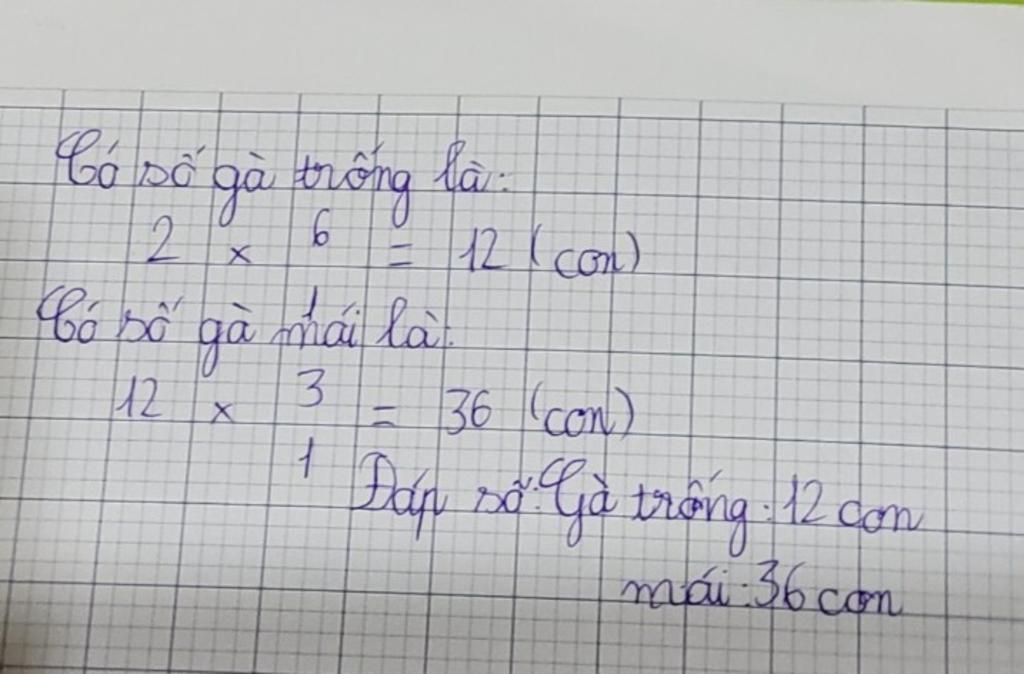 Có số gà trống là:
2 × 6/1 = 12 (con)
Có số gà mái là:
12 × 3/1 = 36 (con)
Đáp số: Gà trống: 12 con
mái: 36 con